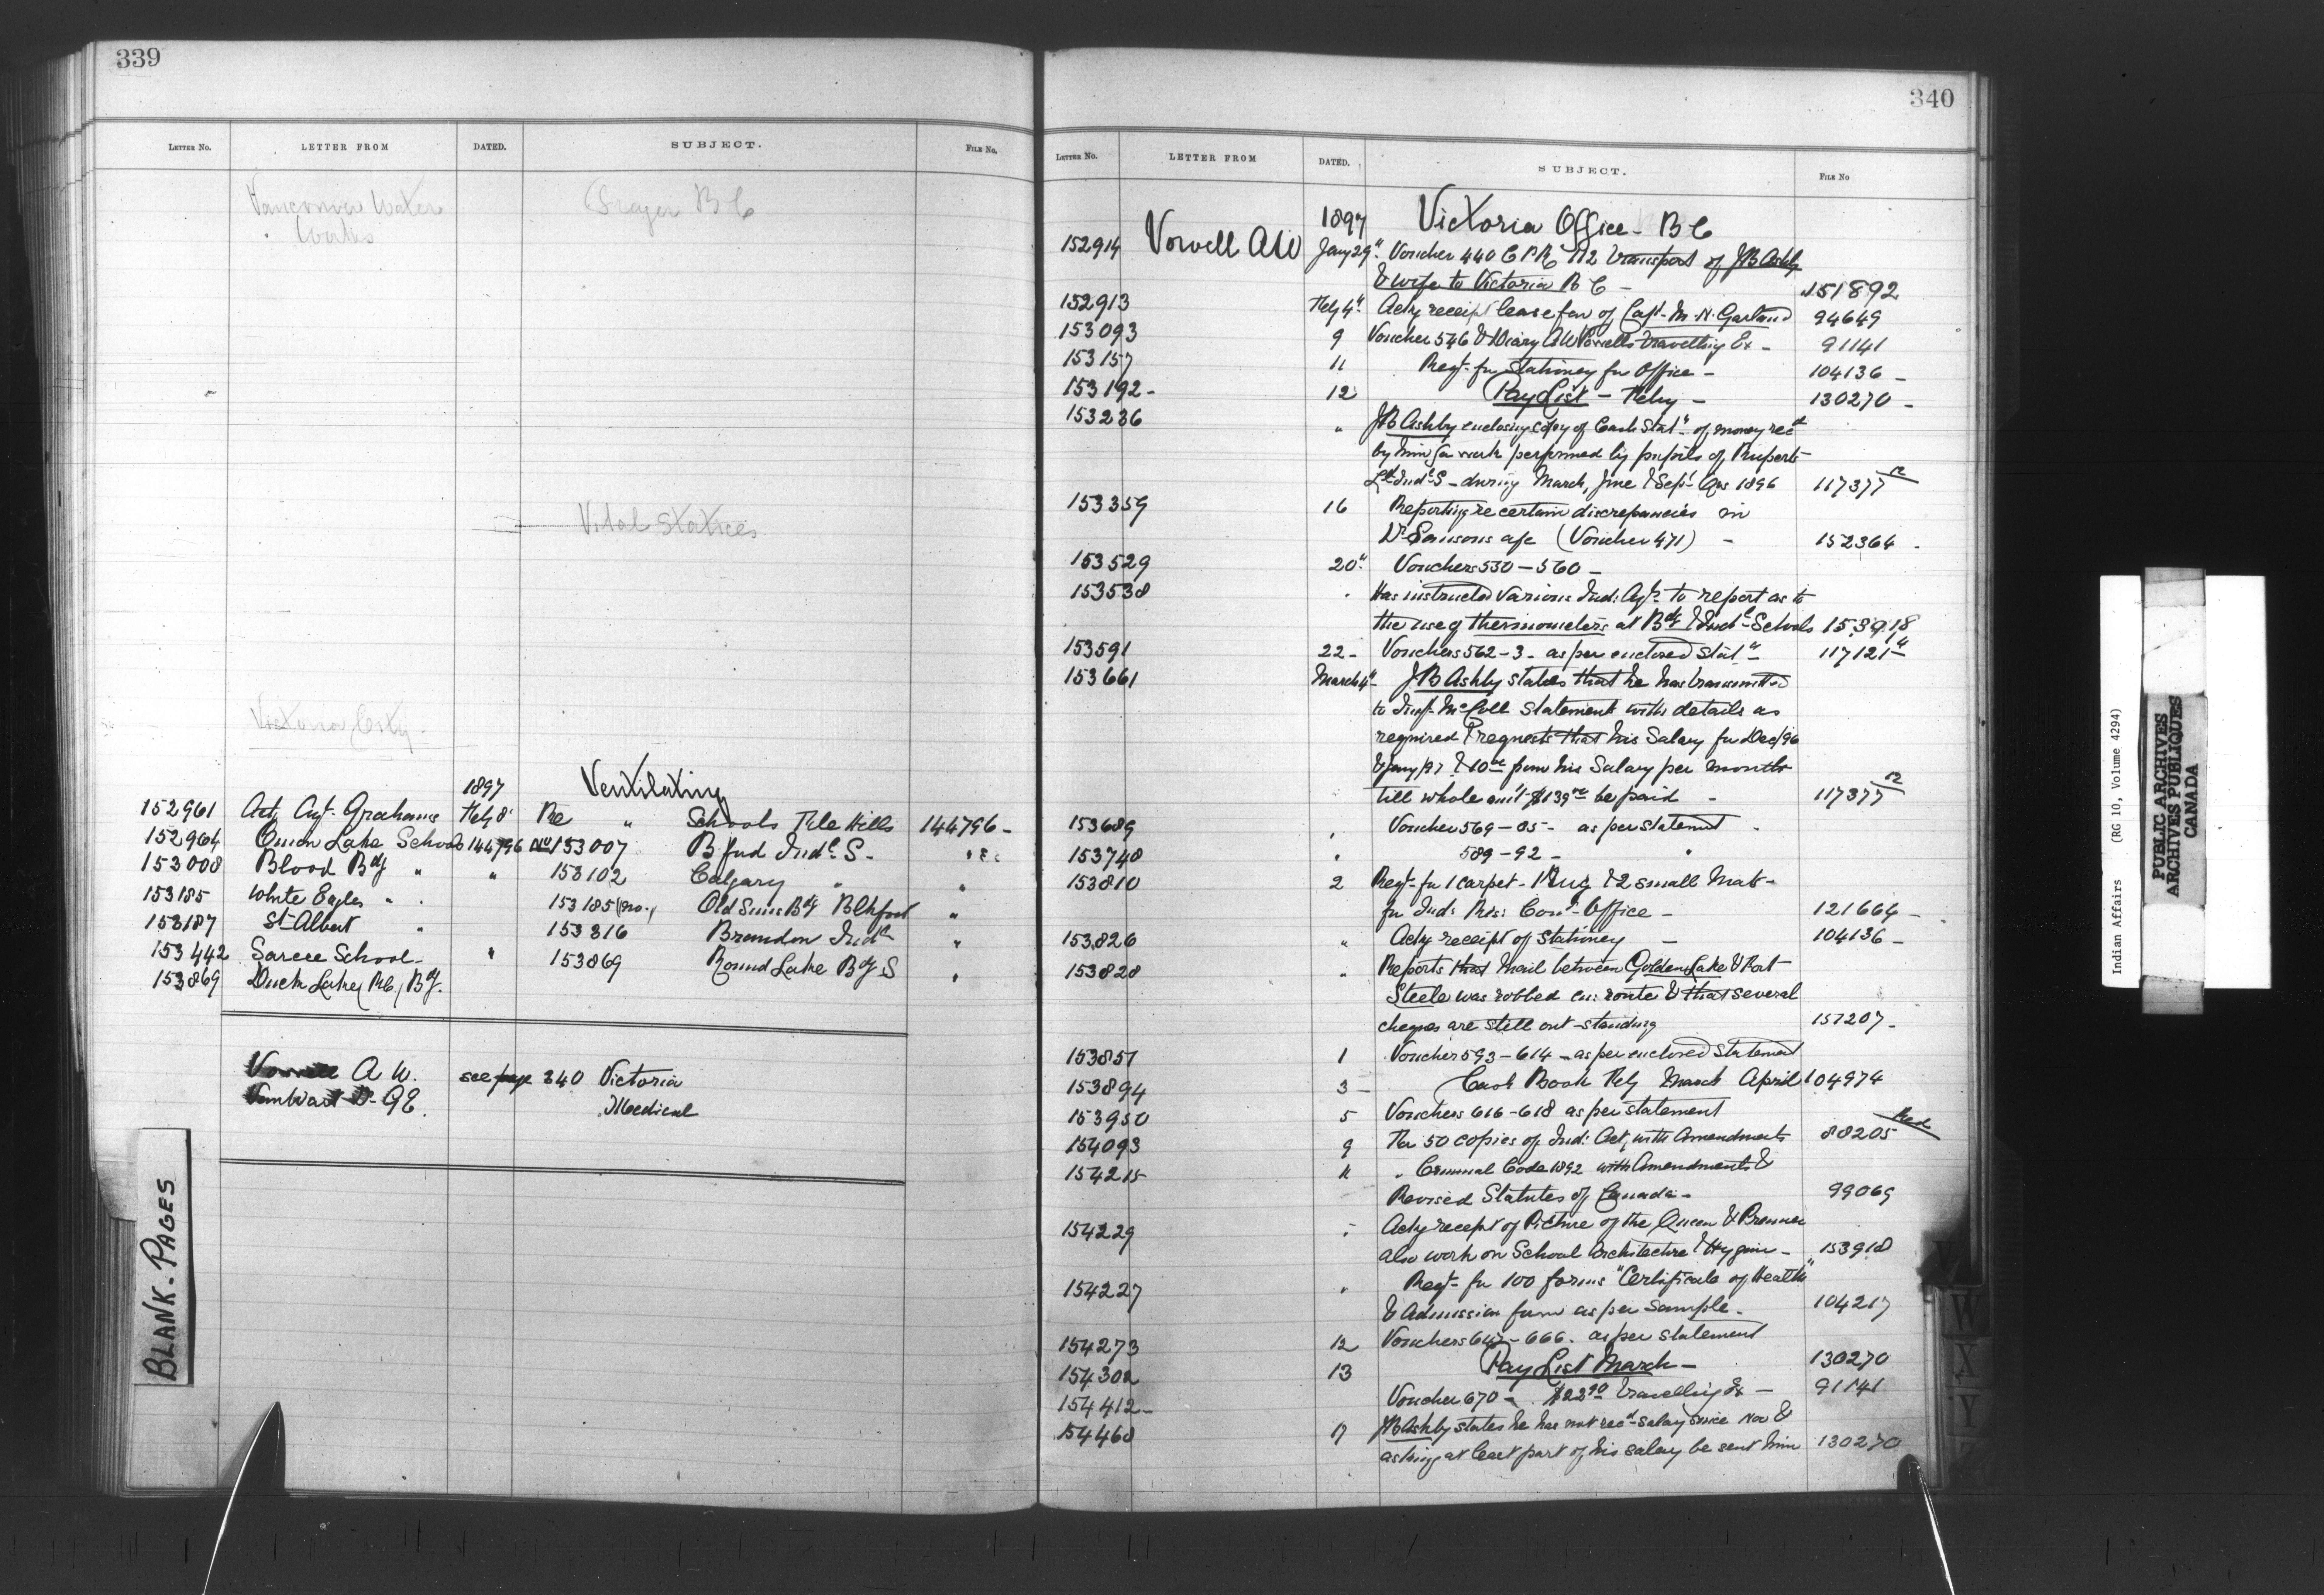 339
LETTER No. LETTER FROM DATED. SUBJECT. FILE No.
Vancouver Water B C
Works
Vital Statices
Victoria City
1897 Ventilating
152961 Act Agt. Grahame Feby 8 Re " Schools File Hills 144796 -
152964 Onion Lake School 144796 153007 B ford Indl S - "
153008 Blood Bdg " " 153102 Calgary " "
153185 White Eagles " 153185 Old Suns Bdg Blkfoot "
153187 St Albert " 153316 Brandon Indl "
153442 Sarcee School - " 153869 Round Lake Bdg S "
153869 Duck Lake (R C) Bdg.
Vowell A W. see page 340 Victoria
Vanwart Dr G E. Medical
BLANK - PAGES
340
LETTER No. LETTER FROM DATED. SUBJECT. FILE No
1897 Victoria Office - B C
152914 Vowell A W Jany 29" Voucher 440 C P R transport of J B Ashby
& wife to Victoria B C - 151892
152913 Feby 4" Ackg receipt lease fav of Capt - M. N. Garland 94649
153093 9 Voucher 546 & Diary A W Vowells travelling Ex - 91141
153157 11 Reqt - for Stationery for Office - 104136 -
153192 - 12 Pay List - Feby - 130270 -
153236 " J B Ashby enclosing copy of Cash Statt of money recd
by him for work performed by pupils of Ruperts
Ld Indl S - during March, June & Sept Qrs 1896 117377
153359 16 Reporting re certain discrepancies in
Dr Sansons a/c (Voucher 471) - 152364 -
153529 20" Vouchers 530 - 560 -
153538 " Has instructed various Ind: Agts to report as to
the use of thermometers at Bdg & Indl Schools 153918
153591 22 - Vouchers 562 - 3 - as per enclosed Statt - 117121
153661 March 4" - J B Ashby states that he has transmitted
to Insp. McColl Statement with details as
required & requests that his Salary for Dec/96
& Jany/97 & 10 00 from his Salary per month
till whole amt - $139 be paid - 117377
153689 " Voucher 569 - 85 - as per statement
153748 " 589 - 92 - "
153810 2 Reqt - for 1 carpet - 1 Rug & 2 small Mats -
for Ind: Res: Comr - Office - 121664 -
153826 " Ackg receipt of Stationery - 104136 -
153828 " Reports that Mail between Golden Lake & Fort
Steele was robbed en: route & that several
cheques are still out-standing 151207 -
153851 1 Voucher 593 - 614 - as per enclosed Statement
153894 3 - Cash Book Feby March April 104974
153950 5 Vouchers 616 - 618 as per statement
154093 9 For 50 copies of Ind: Act, with Amendments 88205
154215 11 " Criminal Code 1892 with Amendments &
Revised Statutes of Canada - 99069
154229 " Ackg receipt of Picture of the Queen & Premier
also work on School Architecture & Hygiene - 153918
154227 " Reqt - for 100 forms "Certificate of Health"
& Admission form as per Sample - 104217
154273 12 Vouchers - 666. as per statement
154302 13 Pay List March - 130270
154412 - Voucher 670 - $22 90 travelling Ex - 91141
154468 17 J B Ashby states he has not recd salary since Nov &
asking at least part of his salary be sent him 130270
W
X
Y
Indian Affairs (RG 10, Volume 4294)
PUBLIC ARCHIVES
ARCHIVES PUBLIQUES
CANADA